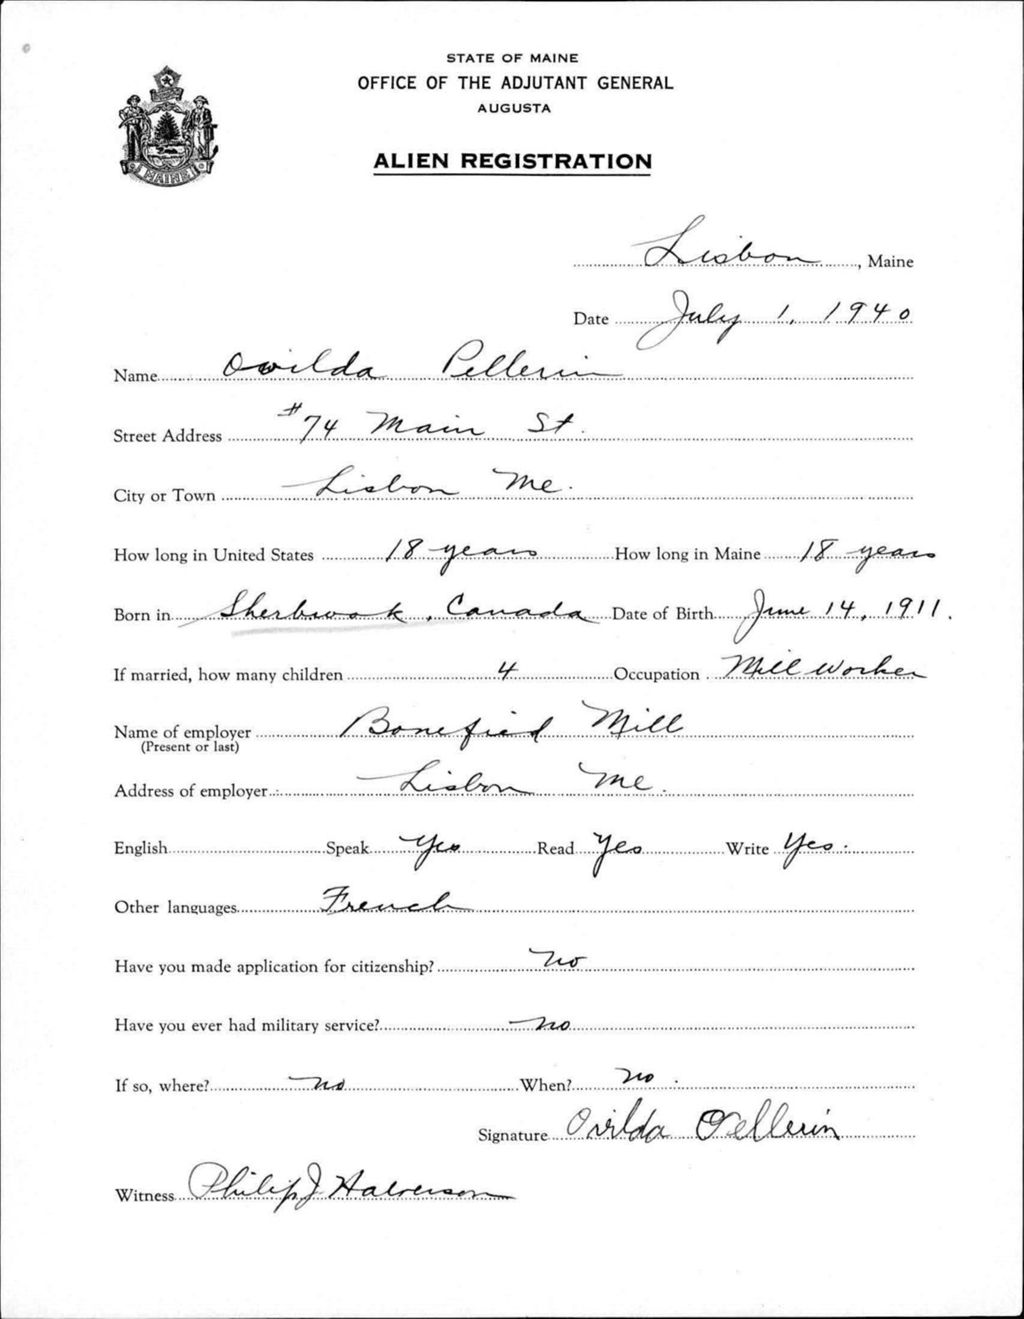 STATE OF MAINE
OFFICE OF THE ADJUTANT GENERAL
AUGUSTA
ALIEN REGISTRATION
MAINE
Lisbon, Maine
Date July 1, 1940
Name Ovilda Pellerin
Street Address #74 Main St.
City or Town Lisbon Me.
How long in United States 18 years How long in Maine 18 years
Born in Sherbrook, Canada Date of Birth June 14, 1911.
If married, how many children 4 Occupation Mill Worker
Name of employer Bonefied Mill
(Present or last)
Address of employer Lisbon Me.
English Speak Yes Read Yes Write Yes.
Other languages French
Have you made application for citizenship? No
Have you ever had military service? no
If so, where? no When? no.
Signature Ovilda Pellerin
Witness Philip J Halverson